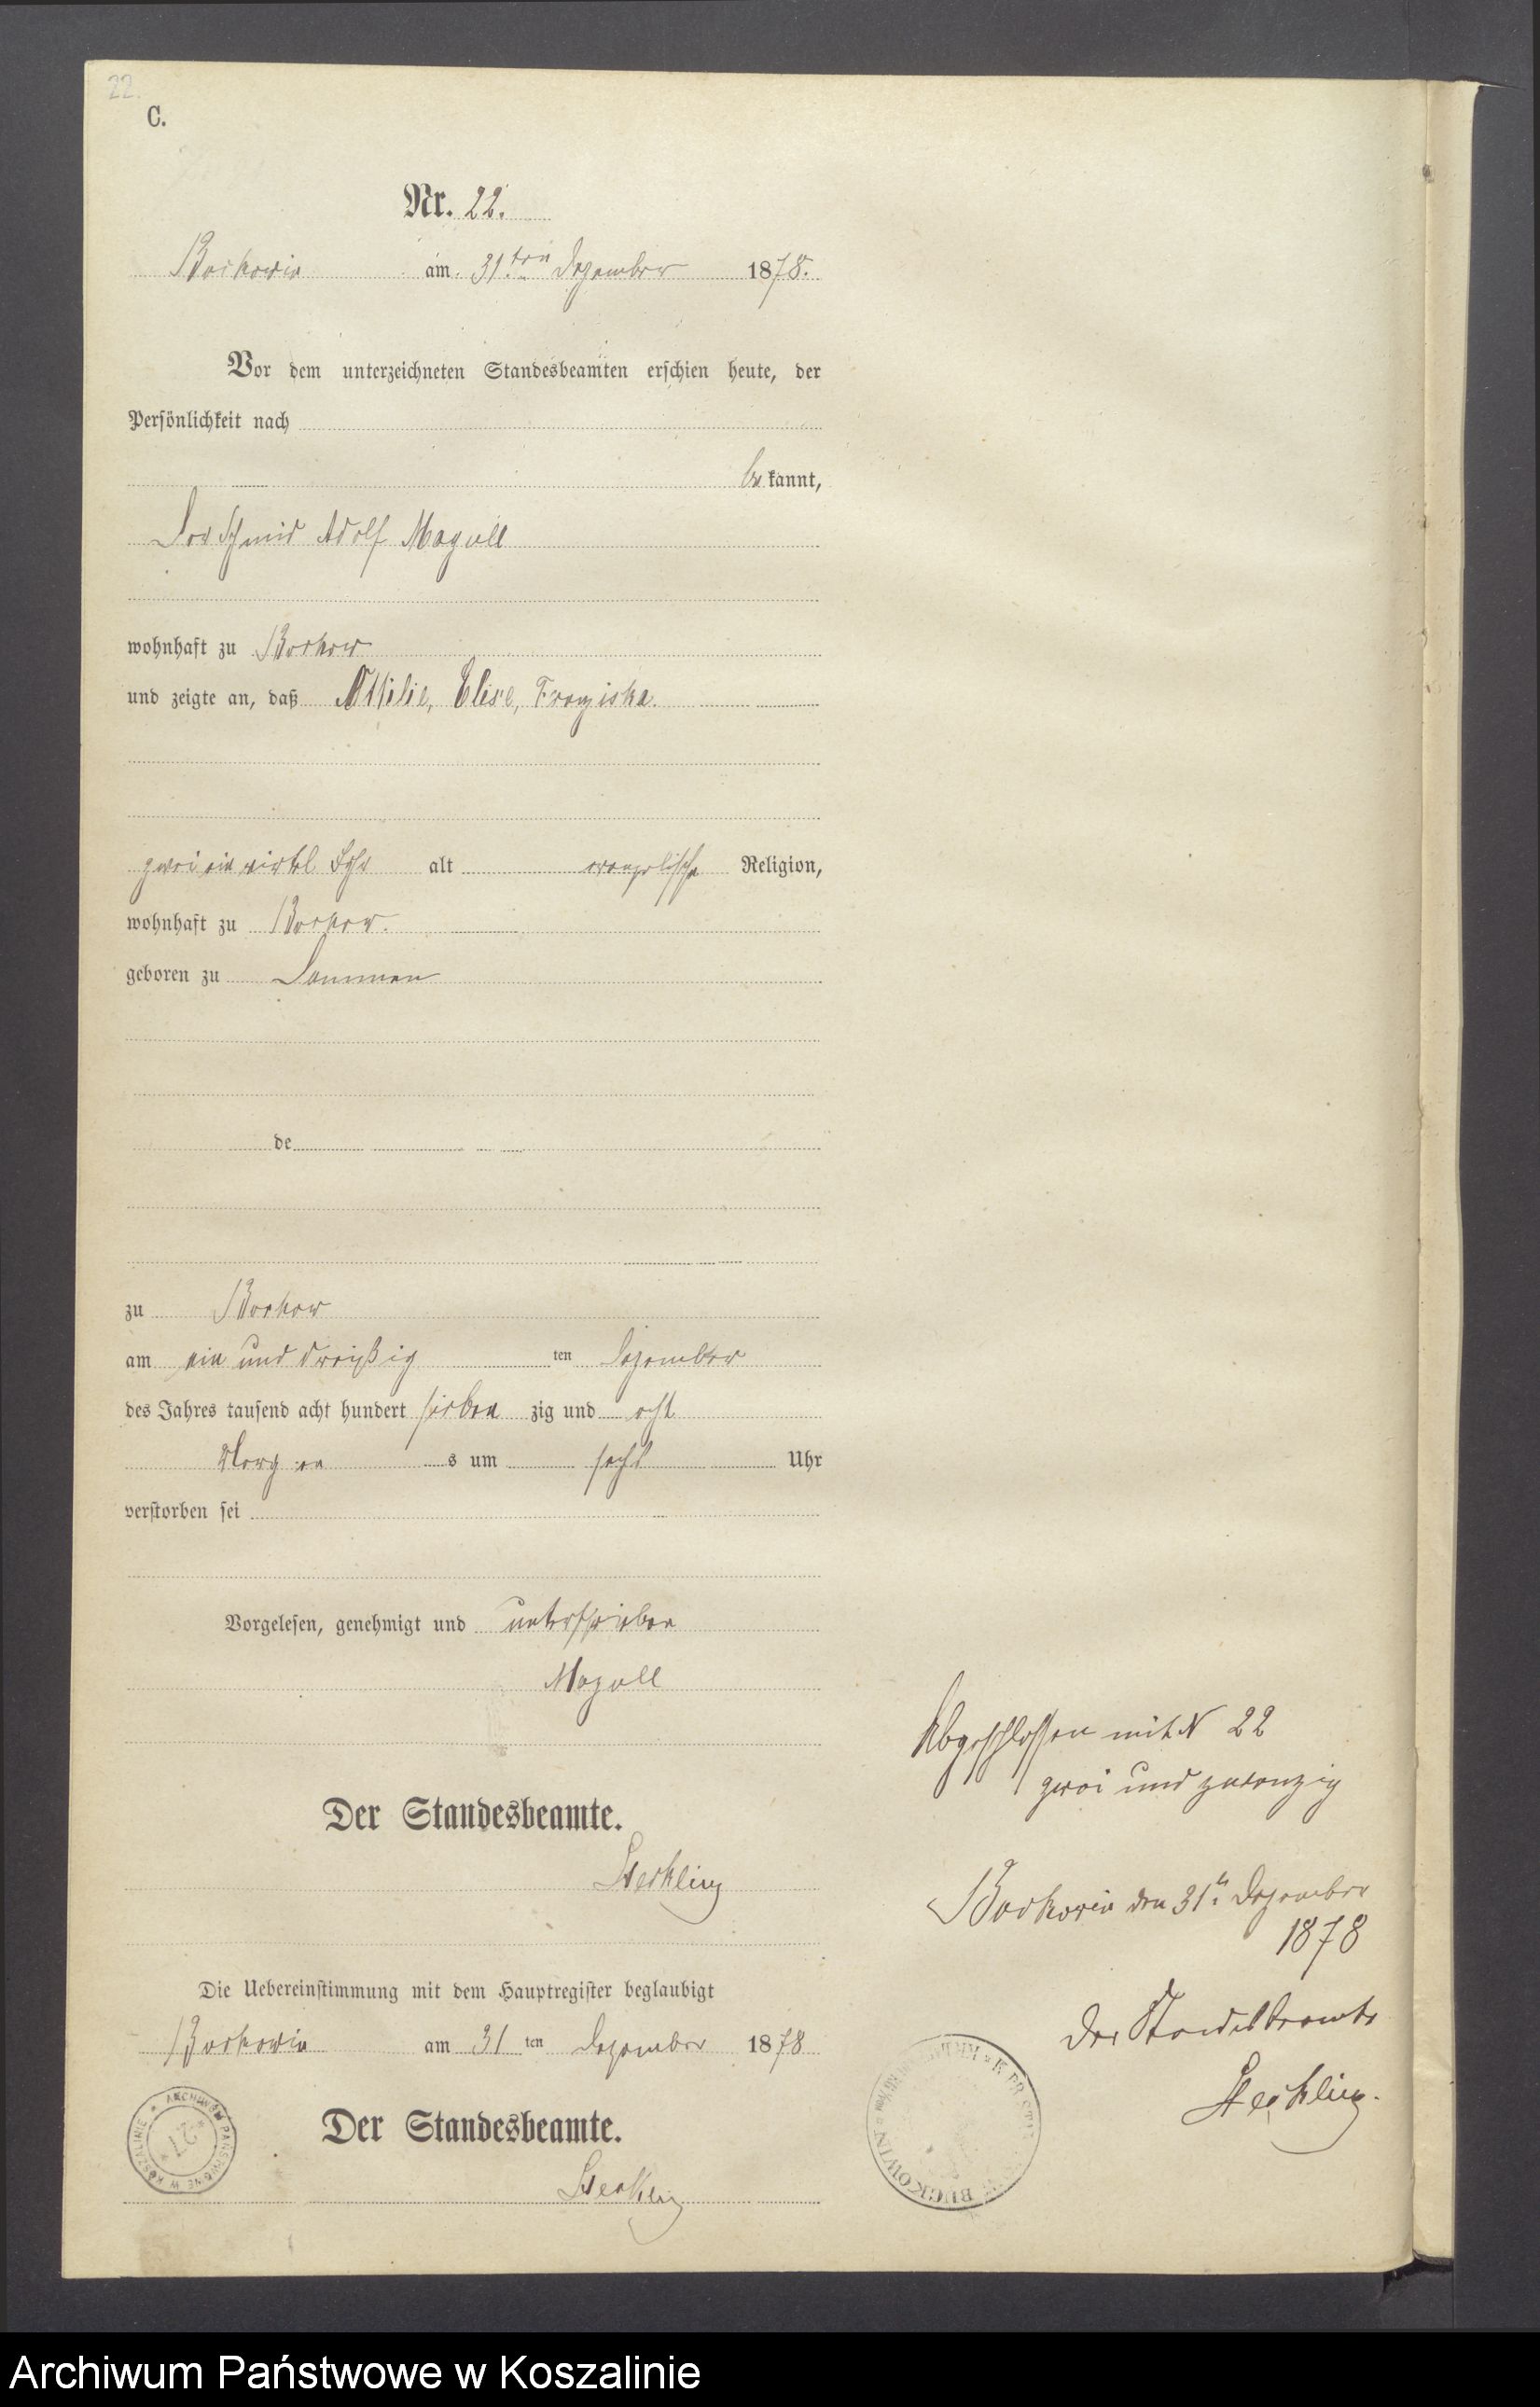 22.
C.
Nr. 22.
am 31ten Dezember 1878.
Vor dem unterzeichneten Standesbeamten erschien heute, der
Persönlichkeit nach
be kannt,
Der Schmid Adolf Magull
wohnhaft zu Borkow
und zeigte an, daß Ottilie, Elise, Franziska.
zwei ein virtel Jahr alt evangelische Religion,
wohnhaft zu Borkow.
geboren zu
de
zu Borkow
am ein und dreißig ten Dezember
des Jahres tausend acht hundert sieben zig und acht
Morgen s um sechs Uhr
verstorben sei
Vorgelesen, genehmigt und unterschrieben
Magull
Der Standesbeamte.
Sterkling
Die Uebereinstimmung mit dem Hauptregister beglaubigt
am 31 ten Dezember 1878
Der Standesbeamte.
Sterkling
Abgeschlossen mit N 22
zwei und zwanzig
den 31t. Dezember
1878
Der Standesbeamte
Sterkling.
ARCHIWUM PAŃSTWOWE W KOSZALINIE
27
BUCKOWIN
Archiwum Państwowe w Koszalinie